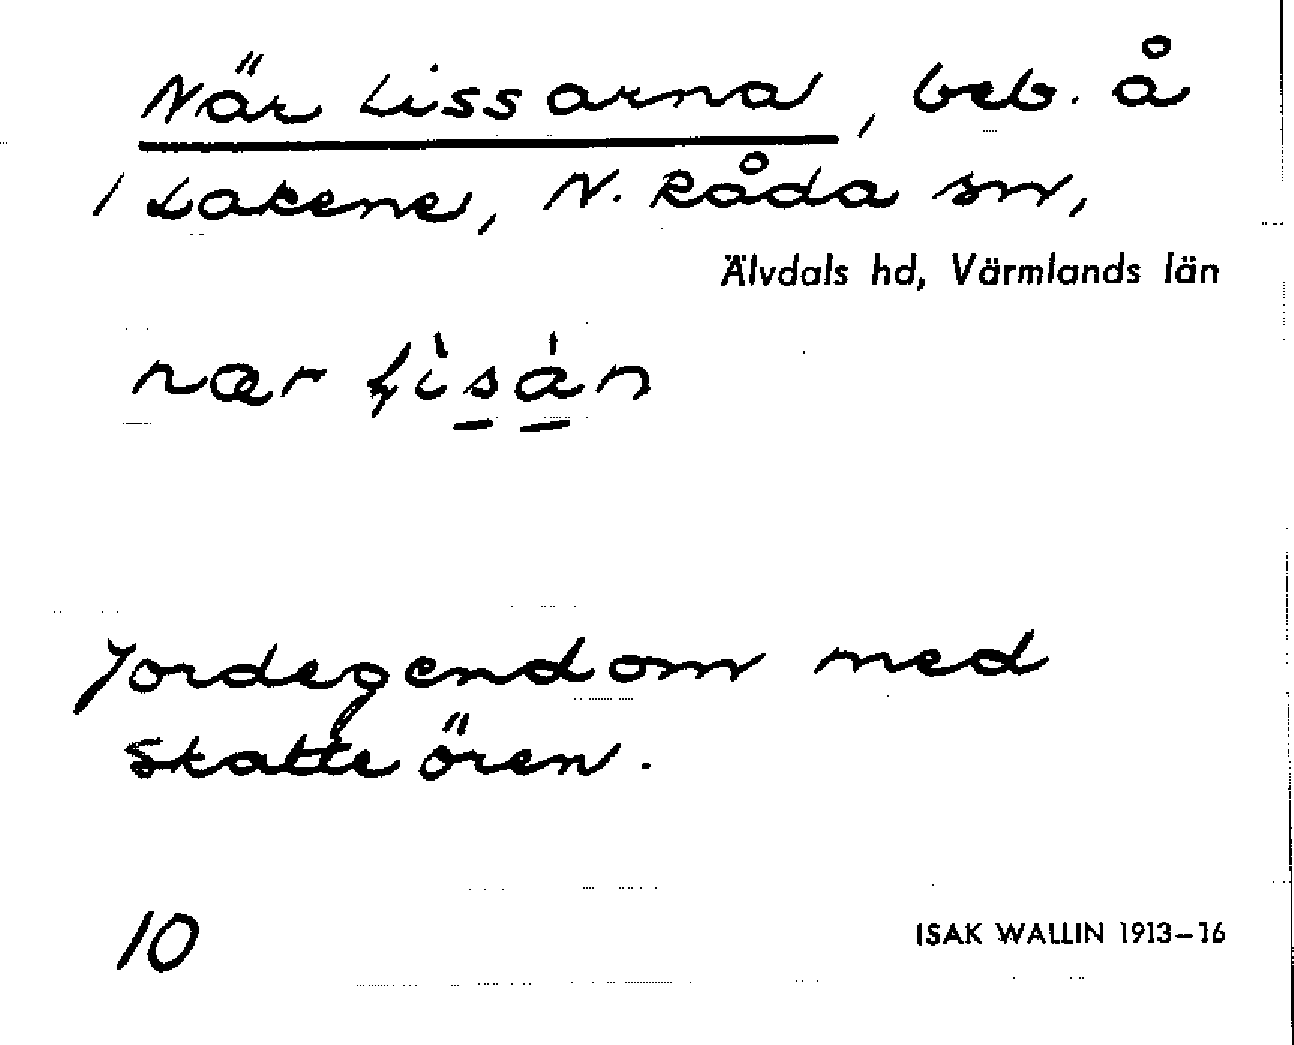 När Lissarna, beb. å
1 Lakene, N. Råda sn,
Älvdals hd, Värmlands län
nær
Jordegendom med
skatteören.
10
ISAK WALLIN 1913–16